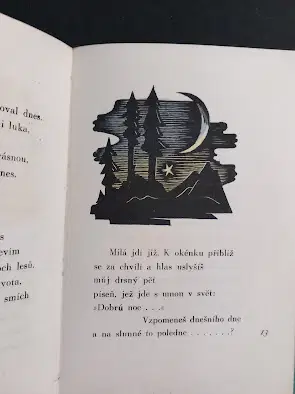 oval dnes.
i luka,
rásnou,
nes.
s
evím
och lesů.
vota,
smích
Milá jdi již. K okénku přibliž
se za chvíli a hlas uslyšíš
můj drsný pět
píseň, jež jde s mnou v svět:
»Dobrú noc . . .«
Vzpomeneš dnešního dne
a na slunné to poledne . . . . . . .?
13